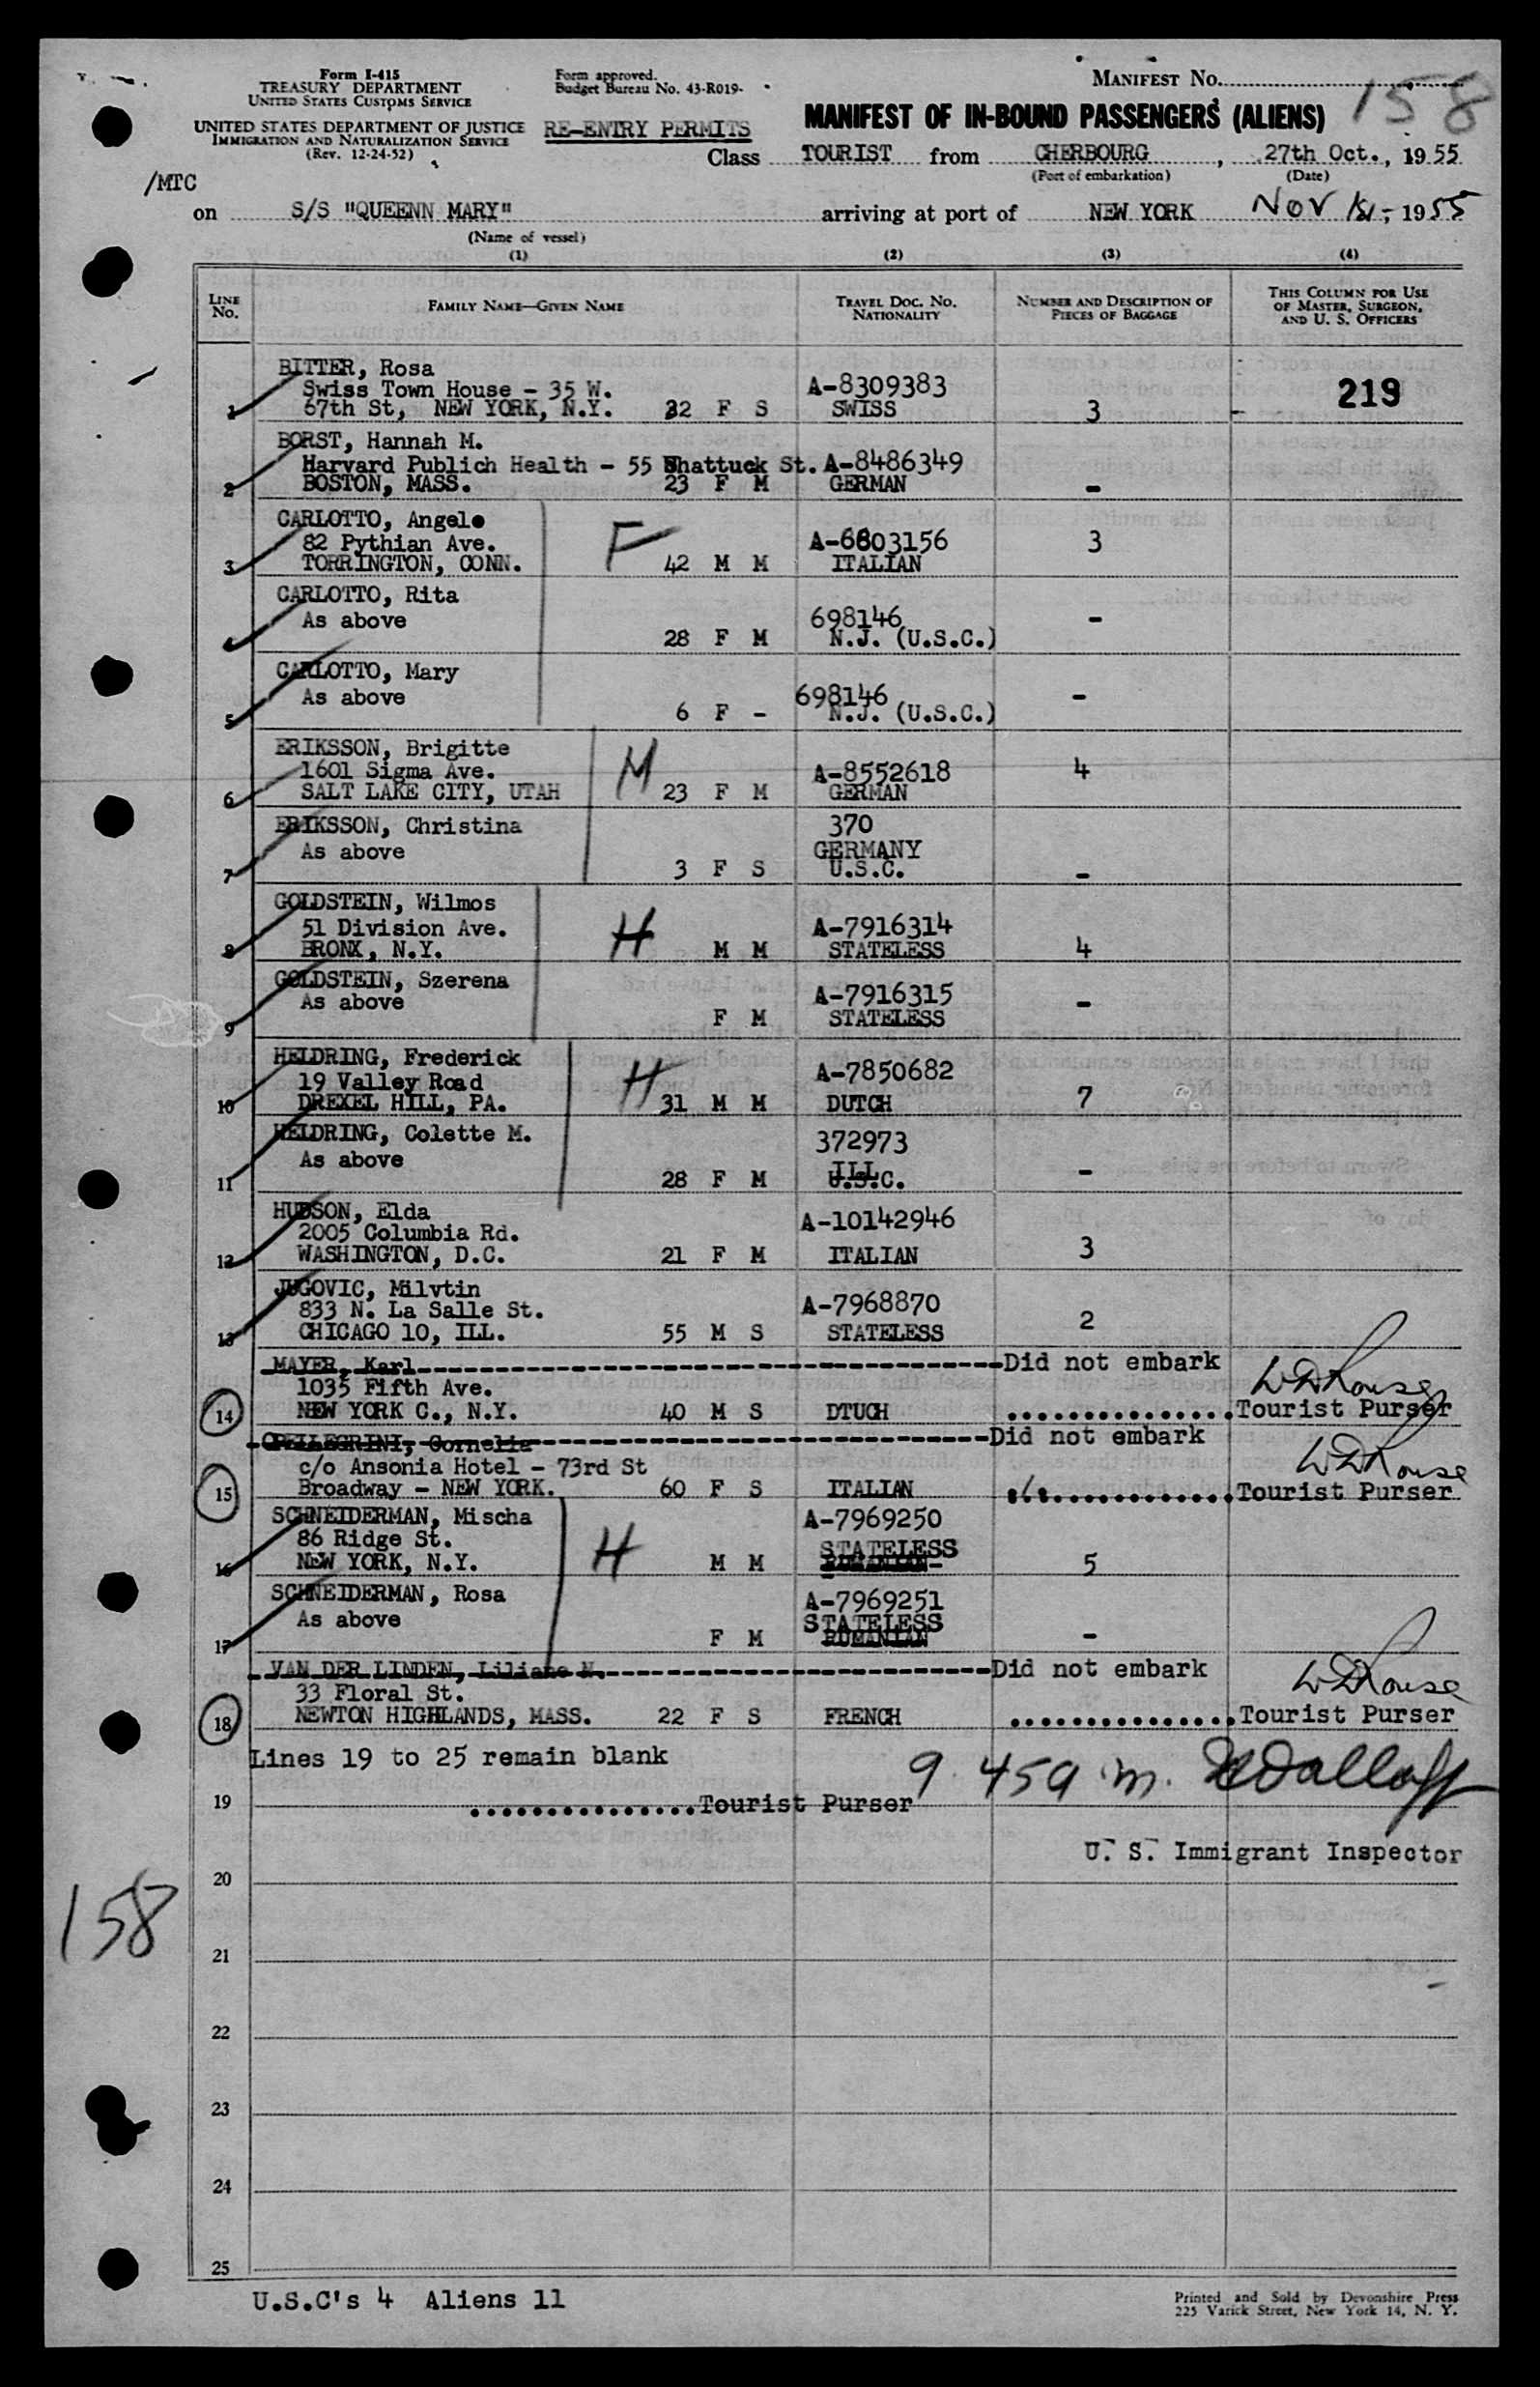 Form I-415
TREASURY DEPARTMENT
UNITED STATES CUSTOMS SERVICE
UNITED STATES DEPARTMENT OF JUSTICE
IMMIGRATION AND NATURALIZATION SERVICE
(Rev. 12-24-52)
Form approved.
Budget Bureau No. 43-R019-
RE-ENTRY PERMITS
MANIFEST NO. 158
MANIFEST OF IN-BOUND PASSENGERS (ALIENS)
Class TOURIST from CHERBOURG, 27th Oct., 1955
(Port of embarkation) (Date)
/MTC
on S/S "QUEENN MARY" arriving at port of NEW YORK NOV 1st, 1955
(Name of vessel)
(1) (2) (3) (4)
LINE No. FAMILY NAME—GIVEN NAME TRAVEL DOC. NO. NATIONALITY NUMBER AND DESCRIPTION OF PIECES OF BAGGAGE THIS COLUMN FOR USE OF MASTER, SURGEON, AND U. S. OFFICERS
BITTER, Rosa
Swiss Town House - 35 W. A-8309383 219
1 67th St, NEW YORK, N.Y. 32 F S SWISS 3 -
BORST, Hannah M.
Harvard Publich Health - 55 Shattuck St. A-8486349
2 BOSTON, MASS. 23 F M GERMAN -
CARLOTTO, Angelo
82 Pythian Ave. F A-6603156 3
3 TORRINGTON, CONN. 42 M M ITALIAN
CARLOTTO, Rita
As above 698146 -
4 28 F M N.J. (U.S.C.)
CARLOTTO, Mary
As above 698146 -
5 6 F - N.J. (U.S.C.)
ERIKSSON, Brigitte
1601 Sigma Ave. M A-8552618 4
6 SALT LAKE CITY, UTAH 23 F M GERMAN
ERIKSSON, Christina 370
As above GERMANY
7 3 F S U.S.C. -
GOLDSTEIN, Wilmos
51 Division Ave. H A-7916314
8 BRONX, N.Y. M M STATELESS 4
GOLDSTEIN, Szerena
As above A-7916315 -
9 F M STATELESS
HELDRING, Frederick
19 Valley Road H A-7850682
10 DREXEL HILL, PA. 31 M M DUTCH 7
HELDRING, Colette M. 372973
As above ILL
11 28 F M U.S.C. -
HUDSON, Elda
2005 Columbia Rd. A-10142946
12 WASHINGTON, D.C. 21 F M ITALIAN 3
JUGOVIC, Milvtin
833 N. La Salle St. A-7968870 2
13 CHICAGO 10, ILL. 55 M S STATELESS
MAYER, Karl Did not embark
1035 Fifth Ave.
14 NEW YORK C., N.Y. 40 M S DTUCH Tourist Purser
OPELLEGRINI, Cornelia Did not embark
c/o Ansonia Hotel - 73rd St
15 Broadway - NEW YORK. 60 F S ITALIAN Tourist Purser
SCHNEIDERMAN, Mischa A-7969250
86 Ridge St. H STATELESS
16 NEW YORK, N.Y. M M RUMANIAN 5
SCHNEIDERMAN, Rosa A-7969251
As above STATELESS
17 F M RUMANIAN -
VAN DER LINDEN, Liliane N. Did not embark
33 Floral St.
18 NEWTON HIGHLANDS, MASS. 22 F S FRENCH Tourist Purser
Lines 19 to 25 remain blank 9 45 a.m.
19 Tourist Purser
U. S. Immigrant Inspector
20
158
21
22
23
24
25
U.S.C's 4 Aliens 11
Printed and Sold by Devonshire Press
225 Varick Street, New York 14, N. Y.